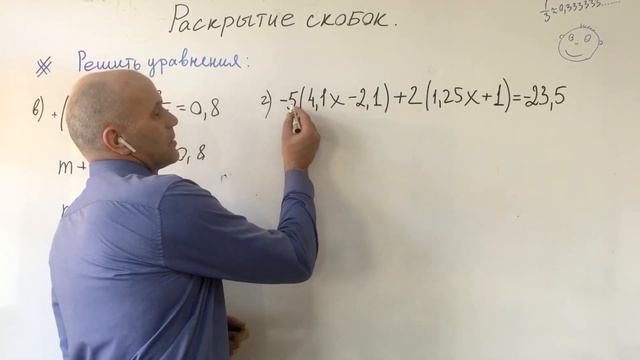 Раскрытие скобок.
1/3 ≈ 0,333333......
※ Решить уравнения:
в) +( = 0,8
г) -5(4,1x-2,1)+2(1,25x+1)=-23,5
m+ 0,8